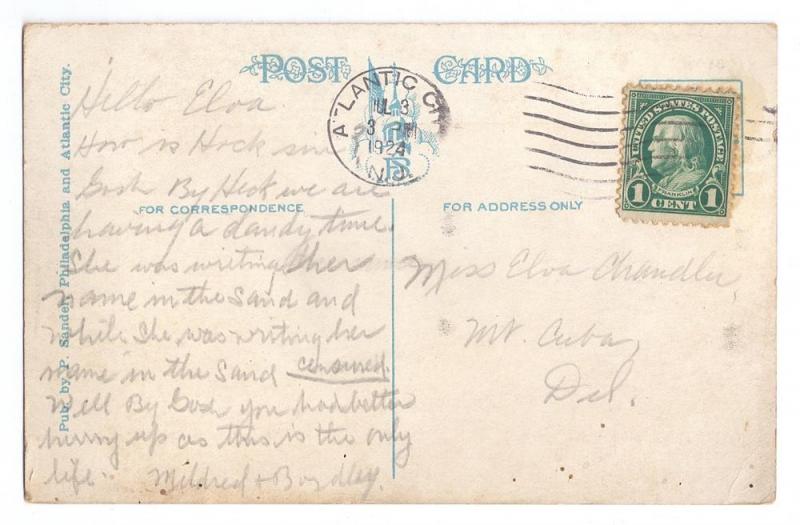 POST CARD
Pub. by P. Sander, Philadelphia and Atlantic City.
ATLANTIC CITY
N.J.
JUL 3
3 PM
1924
UNITED STATES POSTAGE
FRANKLIN
1 CENT 1
FOR CORRESPONDENCE
FOR ADDRESS ONLY
Hello Elva
How is Hock
Gosh By Heck we are
having a dandy time.
She was writing her
name in the sand and
while she was writing her
name in the sand censured.
Well By Gosh you had better
hurry up as this is the only
life. Mildred +
Miss Elva Chandler,
Mt. Cuba,
Del.